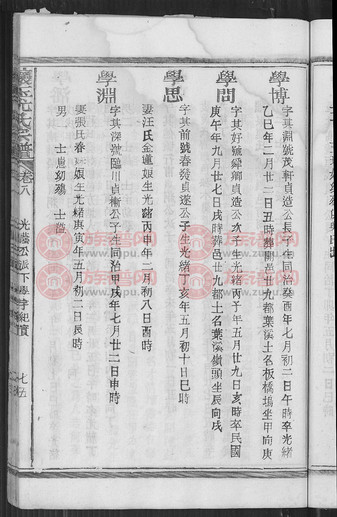 學博
字其淵號茂軒貞造公長子生同治癸酉年七月初二日午時卒光緒
乙巳年二月廿二日丑時葬開邑廿九都葉溪土名板橋塢坐甲向庚
學問
字其好號緑卿貞造公次子生光緒丙子年五月廿九日亥時卒民國
庚午年九月廿七日戌時葬邑廿九都土名葉溪嶺頭坐辰向戌
學思
字其前號春發貞遂公子生光緒丁亥年五月初十日巳時
妻汪氏金蓮娘生光緒丙申年二月初八日酉時
學淵
字其深號臨川貞樹公子生同治甲戌年七月廿二日申時
妻張氏春娘生光緒庚寅年五月初二日辰時
男二 士進幼殤 士溢
氏宗譜 卷八
光 公派下學字紀實
七五